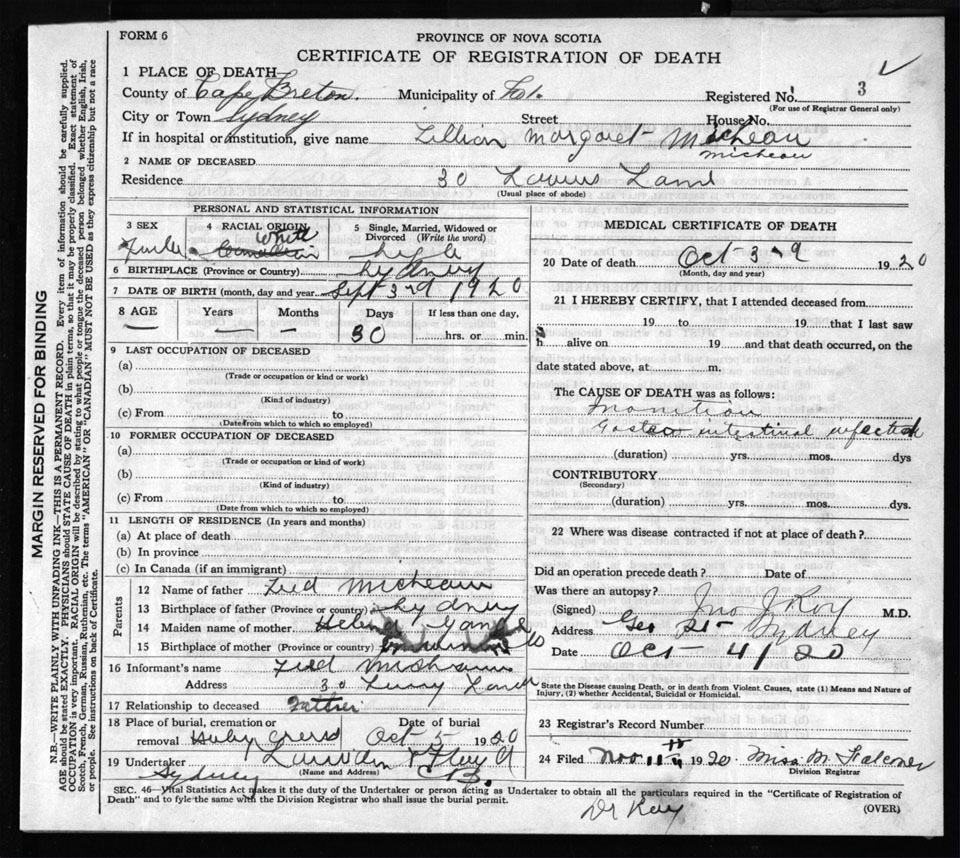 FORM 6
PROVINCE OF NOVA SCOTIA
CERTIFICATE OF REGISTRATION OF DEATH
1 PLACE OF DEATH
County of Cape Breton. Municipality of
Registered No. 3
(For use of Registrar General only)
City or Town Sydney Street House No.
If in hospital or institution, give name Lillian Margaret Micheau
Micheau
2 NAME OF DECEASED
Residence 30
(Usual place of abode)
PERSONAL AND STATISTICAL INFORMATION
3 SEX 4 RACIAL ORIGIN 5 Single, Married, Widowed or Divorced (Write the word)
Female White Canadian Single
6 BIRTHPLACE (Province or Country) Sydney
7 DATE OF BIRTH (month, day and year) Sept 3rd 1920
8 AGE Years Months Days If less than one day,
— — 30 hrs. or min.
9 LAST OCCUPATION OF DECEASED
(a)
(Trade or occupation or kind or work)
(b)
(Kind of industry)
(c) From to
(Date from which to which so employed)
10 FORMER OCCUPATION OF DECEASED
(a)
(Trade or occupation or kind of work)
(b)
(Kind of industry)
(c) From to
(Date from which to which so employed)
11 LENGTH OF RESIDENCE (In years and months)
(a) At place of death
(b) In province
(c) In Canada (if an immigrant)
Parents
12 Name of father Fred Micheau
13 Birthplace of father (Province or country) Sydney
14 Maiden name of mother Helena
15 Birthplace of mother (Province or country)
16 Informant's name Fred
Address 30
17 Relationship to deceased Father
18 Place of burial, cremation or removal Holy Cross Date of burial Oct 5 1920
19 Undertaker
(Name and Address)
Sydney C.B.
MEDICAL CERTIFICATE OF DEATH
20 Date of death Oct 3rd 1920
(Month, day and year)
21 I HEREBY CERTIFY, that I attended deceased from
19 to 19 that I last saw
h alive on 19 and that death occurred, on the
date stated above, at m.
The CAUSE OF DEATH was as follows:
Inanition
Gastro intestinal infection
(duration) yrs. mos. dys
CONTRIBUTORY
(Secondary)
(duration) yrs. mos. dys.
22 Where was disease contracted if not at place of death?
Did an operation precede death? Date of
Was there an autopsy?
(Signed) Jno J Roy M.D.
Address Geo St Sydney
Date Oct 4/20
State the Disease causing Death, or in death from Violent Causes, state (1) Means and Nature of
Injury, (2) whether Accidental, Suicidal or Homicidal.
23 Registrar's Record Number
24 Filed Nov 11th 1920 Miss M Falconer
Division Registrar
SEC. 46—Vital Statistics Act makes it the duty of the Undertaker or person acting as Undertaker to obtain all the particulars required in the "Certificate of Registration of
Death" and to fyle the same with the Division Registrar who shall issue the burial permit.
(OVER)
Dr Roy
MARGIN RESERVED FOR BINDING
N.B.—WRITE PLAINLY WITH UNFADING INK—THIS IS A PERMANENT RECORD. Every item of information should be carefully supplied.
AGE should be stated EXACTLY. PHYSICIANS should STATE CAUSE OF DEATH in plain terms, so that it may be properly classified. Exact statement of
OCCUPATION is very important. RACIAL ORIGIN will be described by stating to what people or tongue the deceased person belonged whether English, Irish,
Scotch, French, German, Russian, Ruthenian, etc. The terms "AMERICAN" or "CANADIAN" MUST NOT BE USED as they express citizenship but not a race
or people. See instructions on back of Certificate.